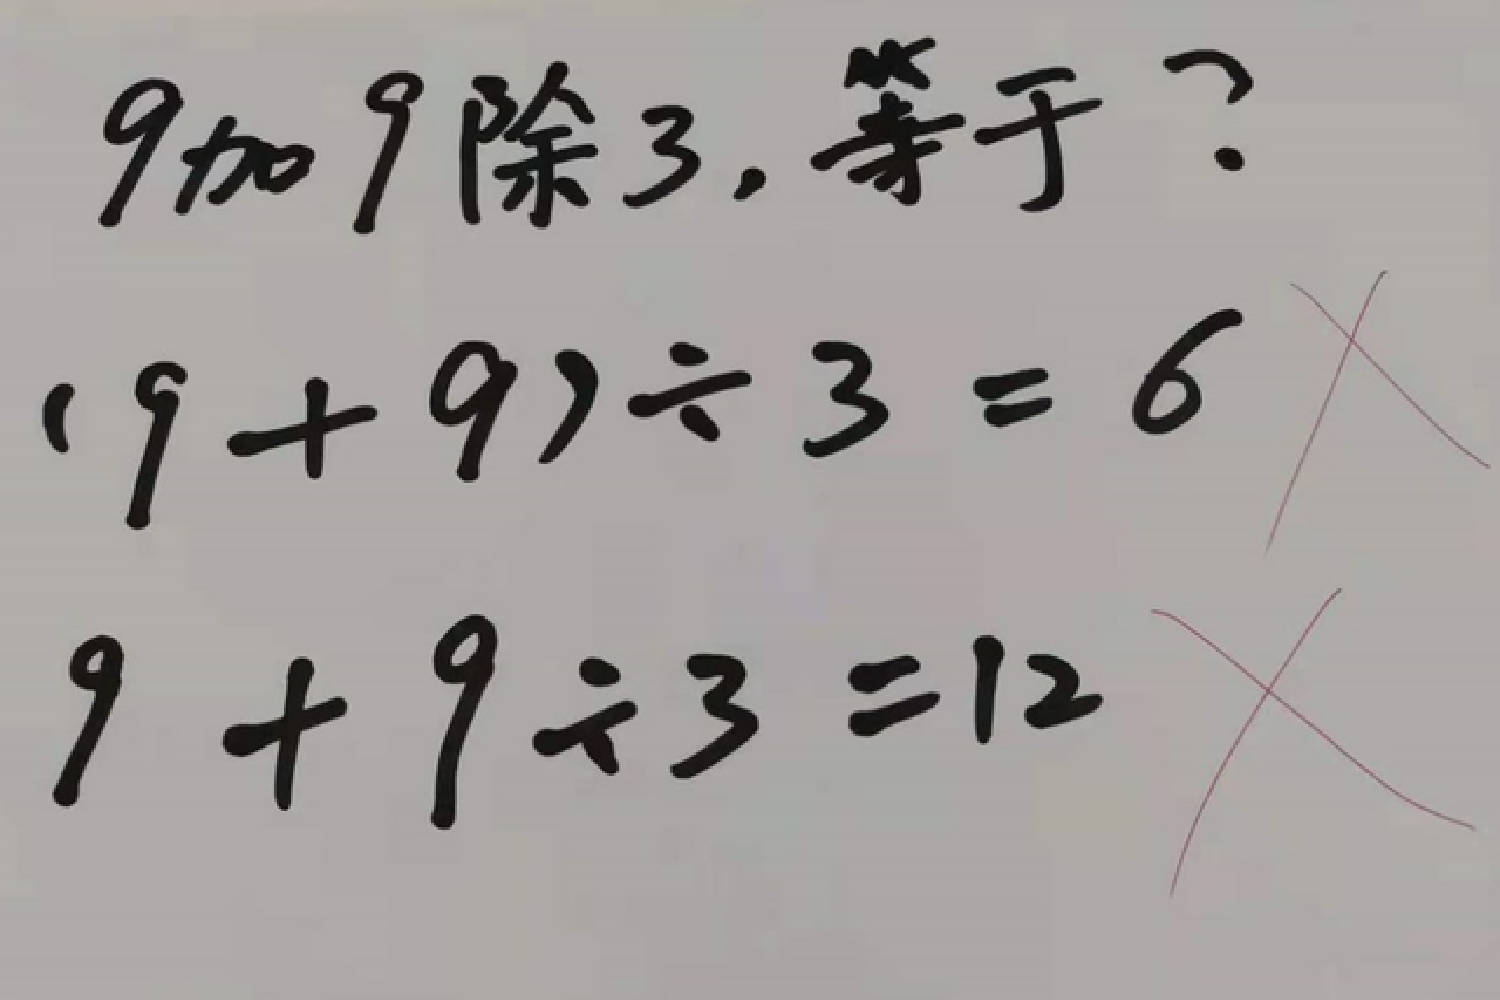 9加9除3,等于?
(9+9)÷3=6
9+9÷3=12